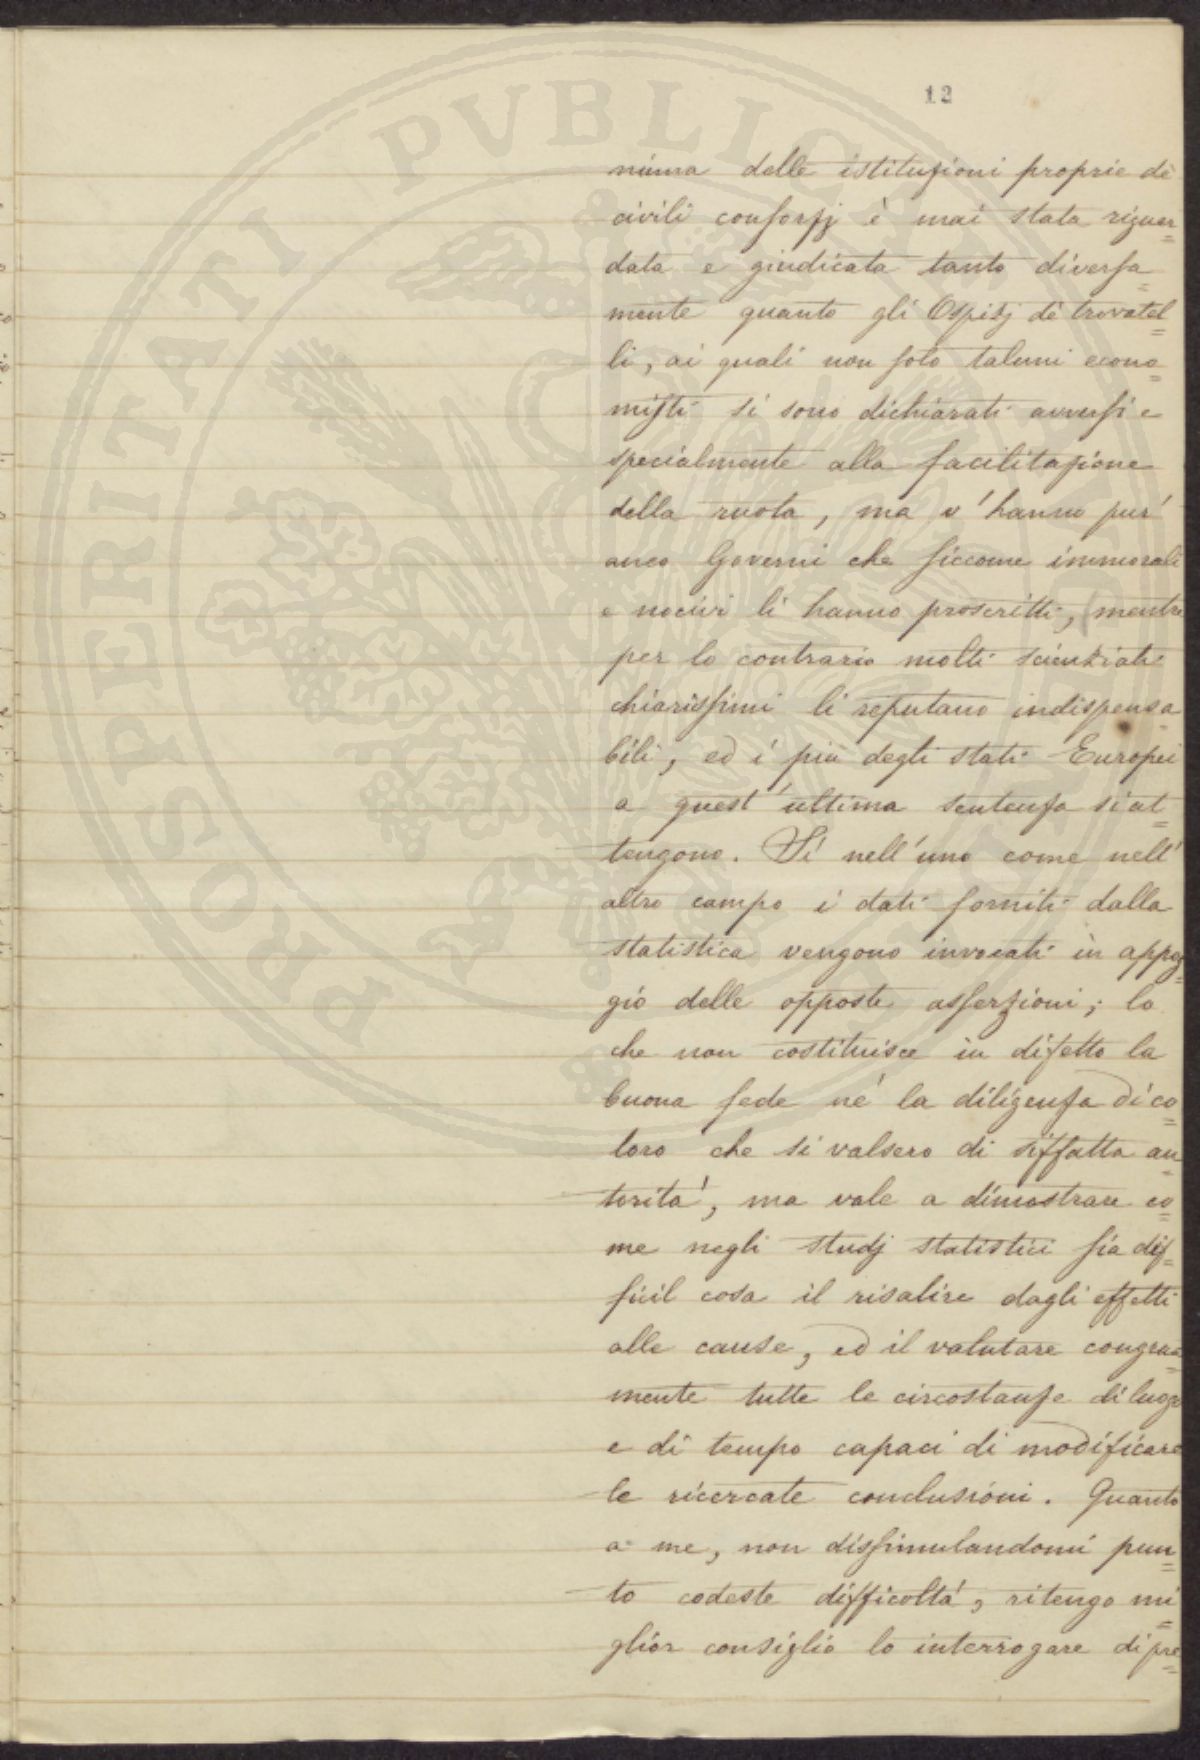 12
PROSPERITATI PVBLICAE
niuna delle istituzioni proprie de'
civili consorzj è mai stata riguar=
data e giudicata tanto diversa=
mente quanto gli Ospizj de' trovatel=
li, ai quali non solo taluni econo=
misti si sono dichiarati avversi e
specialmente alla facilitazione
della ruota, ma v'hanno pur'
anco Governi che siccome immorali
e nocivi li hanno proscritti, mentre
per lo contrario molti scienziati
chiarissimi li reputano indispensa=
bili, ed i più degli stati Europei
a quest'ultima sentenza si at=
tengono. Sì nell'uno come nell'
altro campo i dati forniti dalla
statistica vengono invocati in appog=
gio delle opposte asserzioni; lo
che non costituisce in difetto la
buona fede nè la diligenza di co=
loro che si valsero di siffatta au=
torità, ma vale a dimostrare co=
me negli studj statistici sia dif=
ficil cosa il risalire dagli effetti
alle cause, ed il valutare congrua=
mente tutte le circostanze di luogo
e di tempo capaci di modificare
le ricercate conclusioni. Quanto
a me, non dissimulandomi pun=
to codeste difficoltà, ritengo mi=
glior consiglio lo interrogare di pre=